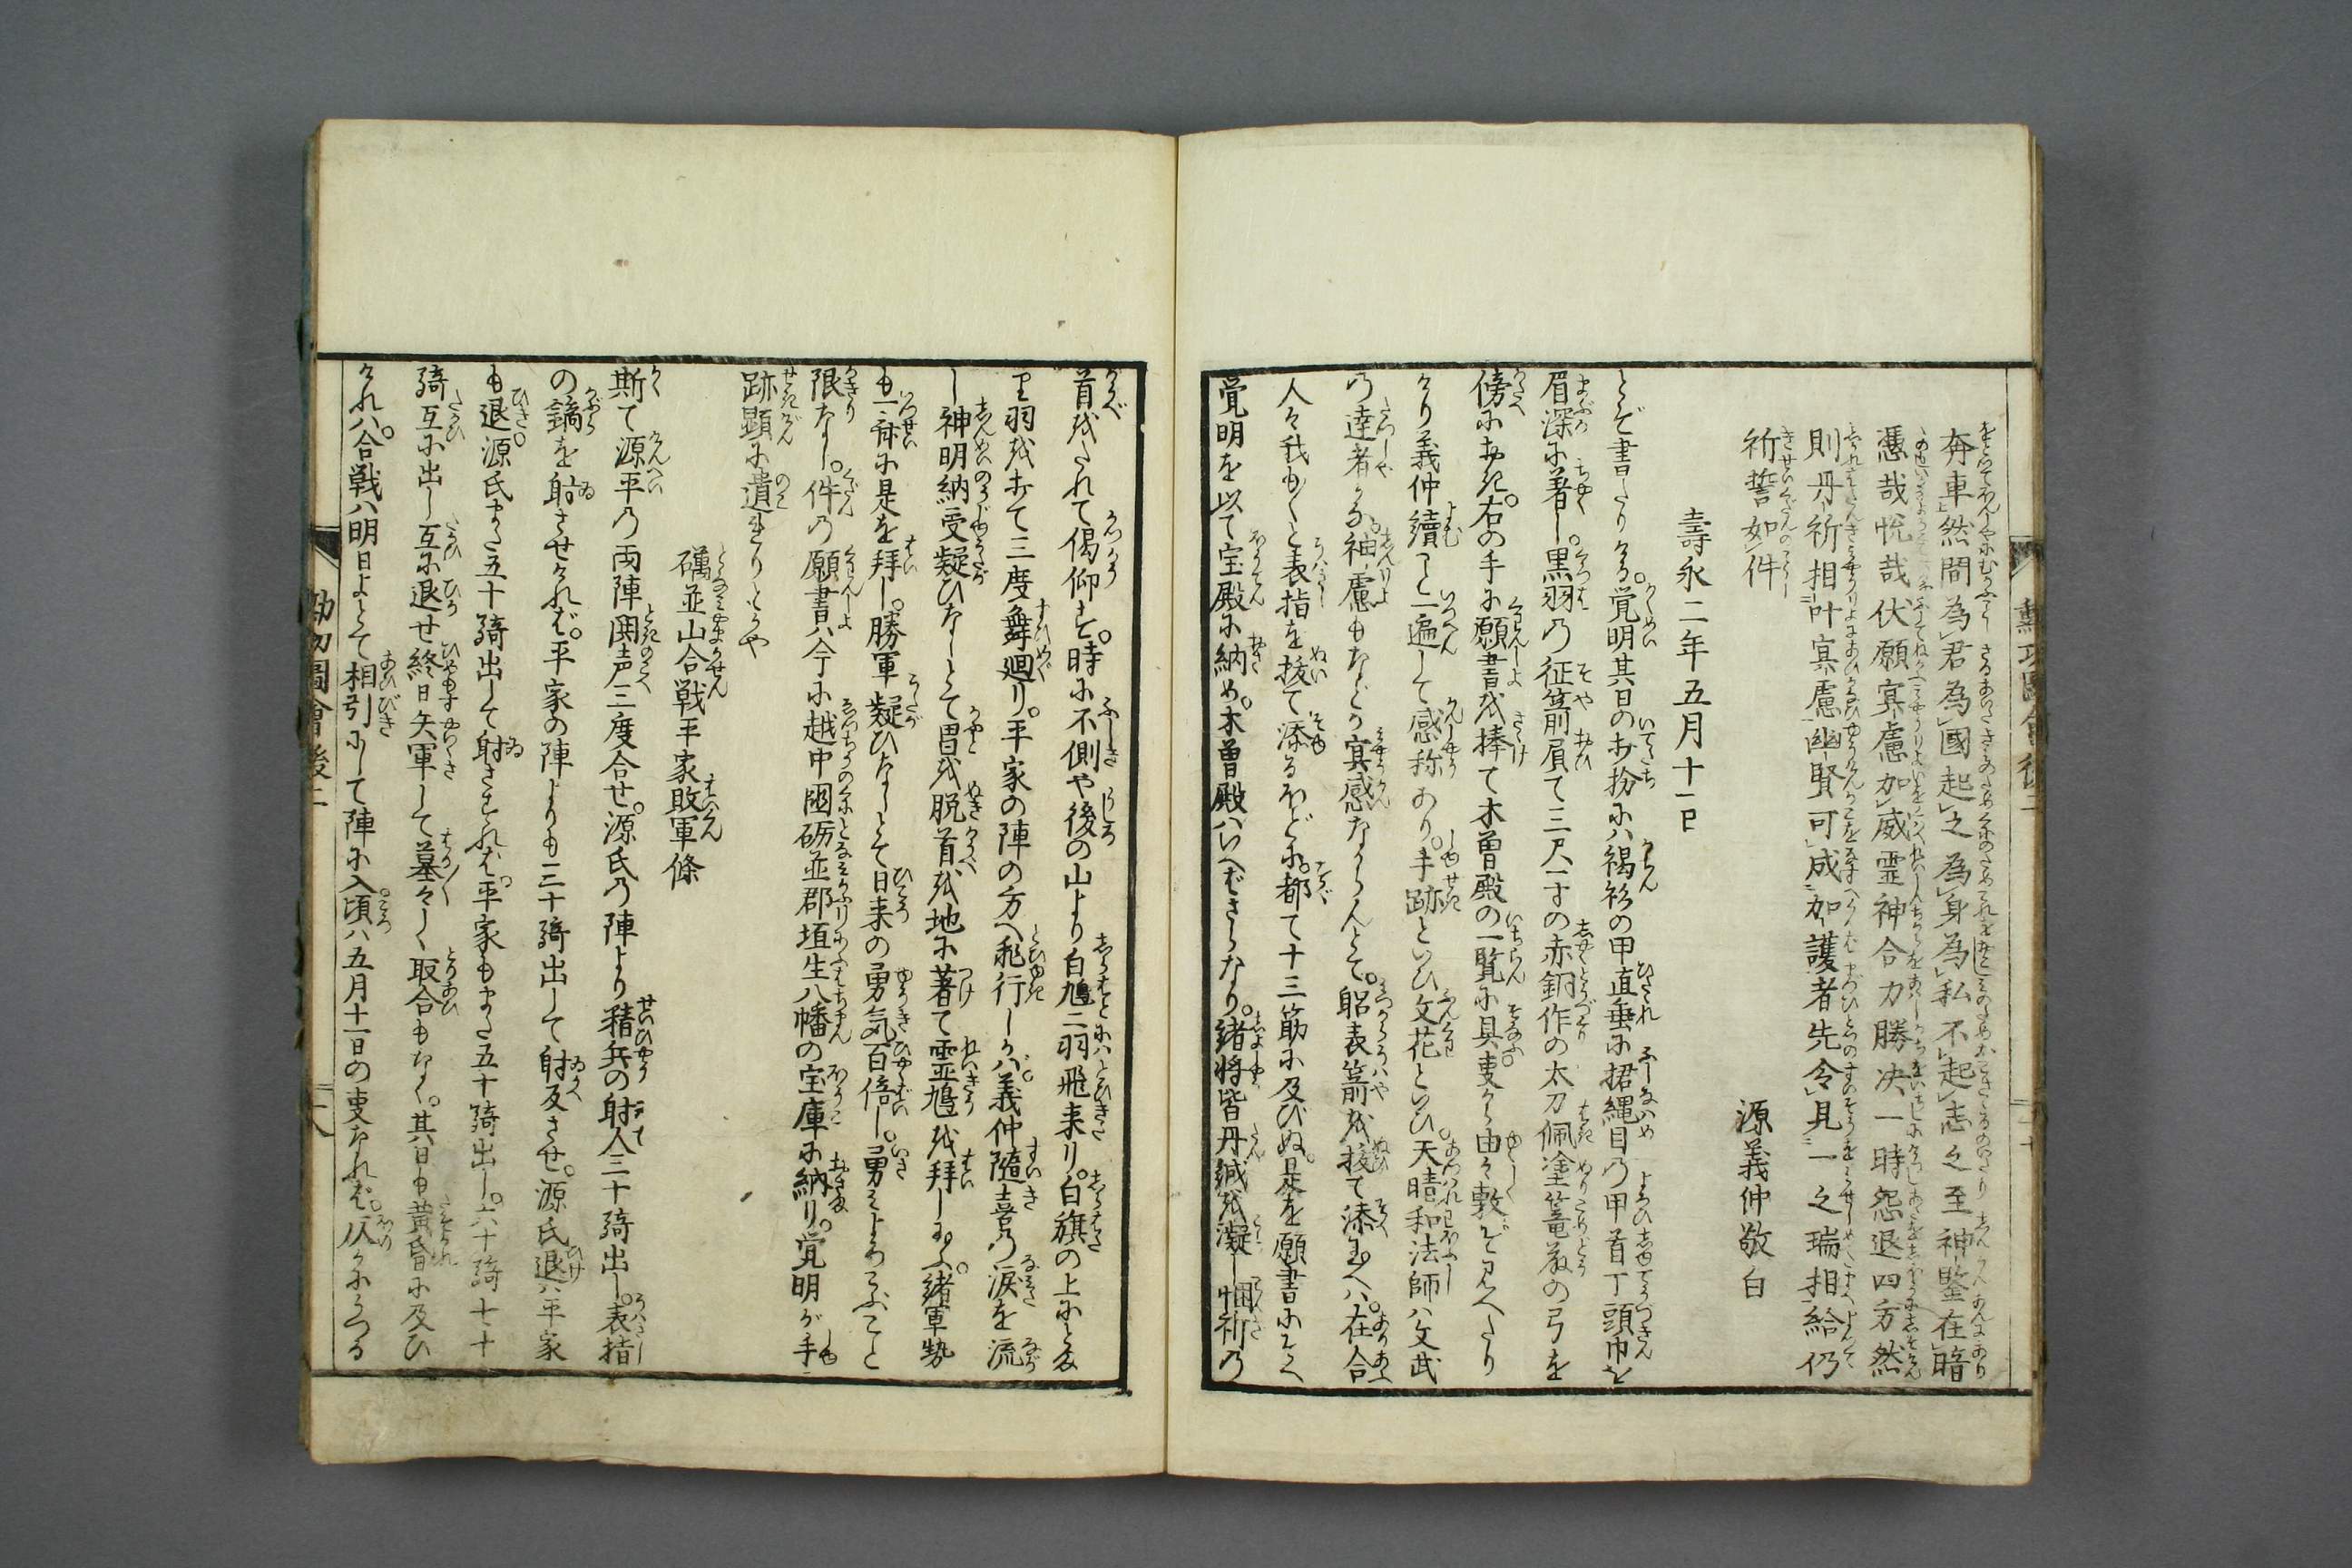 奔車然間為君為國起之為身為私不起志之至神鑒在暗
憑哉悦哉伏願冥慮加威霊神合力勝决一時怨退四方然
則丹祈相叶冥慮幽賢可成加護者先令見一之瑞相給仍
祈誓如件
壽永二年五月十一日
源義仲敬白
とぞ書たりける。覚明其日の出扮にハ褐衫の甲直垂に捃縄目の甲首丁頭巾を
眉深に著し。黒羽の征箭屓て三尺一寸の赤銅作の太刀佩塗篭籐の弓を
傍に挟。右の手に願書を捧て木曽殿の一覧に具ふ。叓々由々敷ぞ見へたり
けり義仲續と一遍して感称あり。手跡といひ文花といひ。天晴和法師ハ文武
の達者かな。神慮もなどか冥感なからんとて。躬表箭を抜て添玉へハ。在合
人々我も〳〵と表指を抜て添るほどに。都て十三筋に及びぬ。是を願書にそへ
覚明を以て宝殿に納め。木曽殿ハいへばさらなり。緒将皆丹誠を凝し悃祈の
首をたれて偈仰す。時に不側や後の山より白鳩二羽飛来り。白旗の上にとま
り羽を打て三度舞廻り。平家の陣の方へ飛行しかバ。義仲隨喜の涙を流
し神明納受疑ひなしとて冑を脱首を地に著て霊鳩を拝し玉ふ。緒軍勢
も一斉に是を拜し。勝軍疑ひなしとて日来の勇気百倍し。勇みよろこぶこと
限なし。件の願書ハ今に越中國砺並郡埴生八幡の宝庫に納り。覚明が手
跡顕に遺れりとかや
礪並山合戦平家敗軍條
斯て源平の両陣鬨声三度合せ。源氏の陣より精兵の射人三十騎出し。表指
の鏑を射させけれバ。平家の陣よりも三十騎出して射反させ。源氏退ハ平家
も退。源氏また五十騎出して射さすれバ。平家もまた五十騎出し。六十騎七十
騎互に出し互に退せ終日矢軍して墓々しく取合もなく。其日も黄昏に及ひ
けれハ。合戦ハ明日よとて相引にして陣に入。頃ハ五月十一日の叓なれバ。仄かにうつる
勲功圖會後二
勲功圖會後二